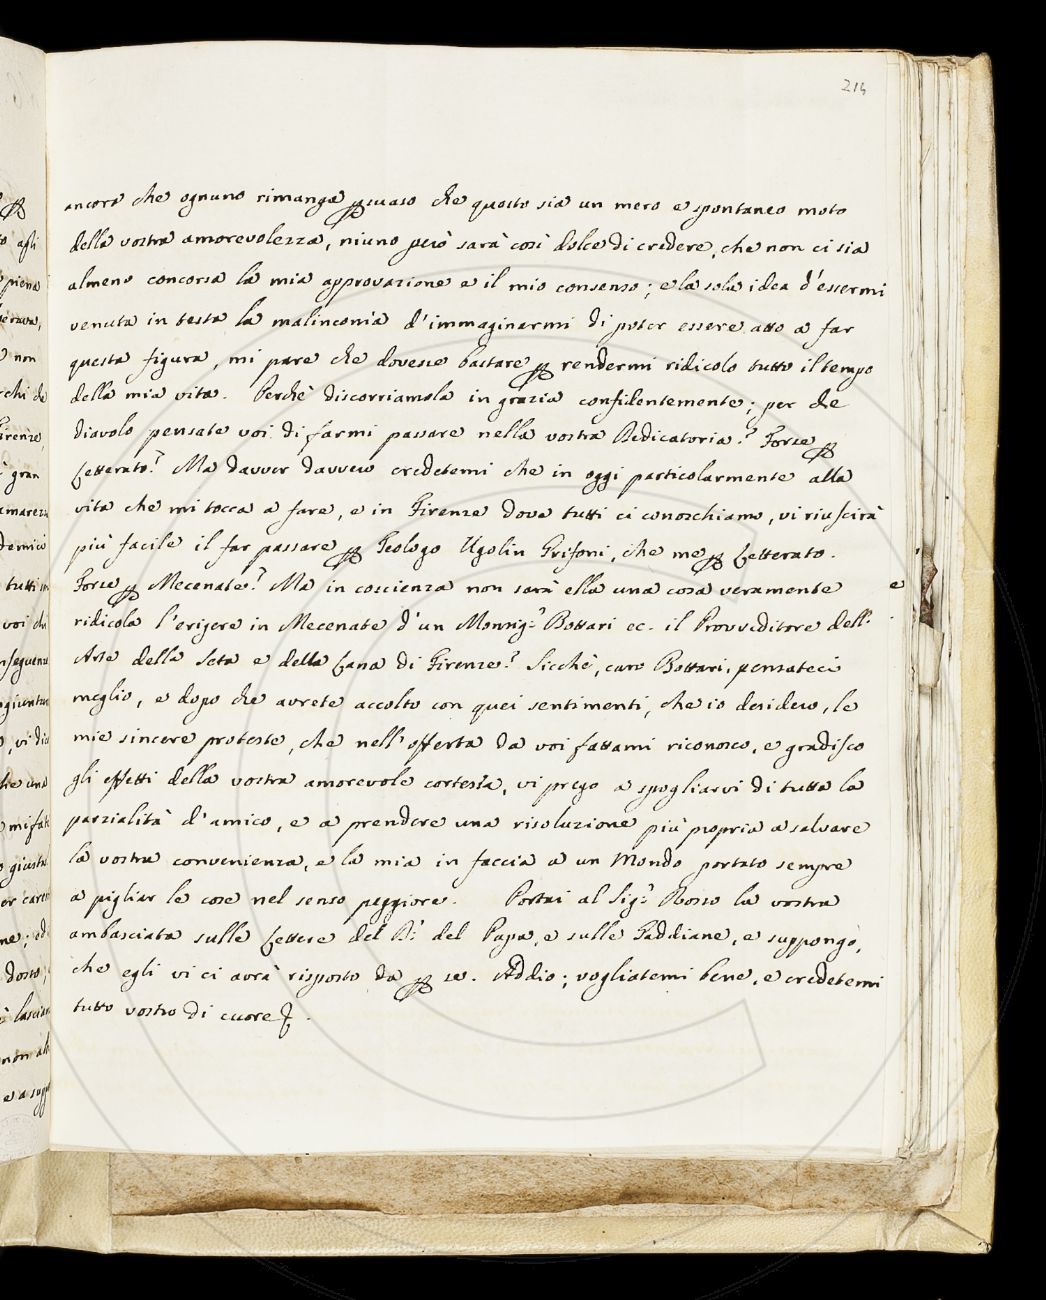 214
ancora che ognuno rimanga ꝑsuaso che questo sia un mero e spontaneo moto
della vostra amorevolezza, niuno però sarà così dolce di credere, che non ci sia
almeno concorsa la mia approvazione e il mio consenso; e la sola idea d'essermi
venuta in testa la malinconia d'immaginarmi di poter essere atto a far
questa figura, mi pare che dovesse bastare ꝑ rendermi ridicolo tutto il tempo
della mia vita. Perchè discorriamola in grazia confidentemente; per che
diavolo pensate voi di farmi passare nella vostra Dedicatoria? Forse ꝑ
Letterato? Ma davver davvero credetemi che in oggi particolarmente alla
vita che mi tocca a fare, e in Firenze dove tutti ci conoschiamo, vi riuscirà
più facile il far passare ꝑ Teologo Ugolin Grifoni, che me ꝑ Letterato.
Forse ꝑ Mecenate? Ma in coscienza non sarà ella una cosa veramente
ridicola l'erigere in Mecenate d'un Monsig.r Bottari ec. il Provveditore dell'
Arte della Seta e della Lana di Firenze? Sicchè, caro Bottari, pensateci
meglio, e dopo che avrete accolto con quei sentimenti, che io desidero, le
mie sincere proteste, che nell'offerta da voi fattami riconosco, e gradisco
gli effetti della vostra amorevole cortesia, vi prego a spogliarvi di tutta la
parzialità d'amico, e a prendere una risoluzione più propria a salvare
la vostra convenienza, e la mia in faccia a un Mondo portato sempre
a pigliar le cose nel senso peggiore. Portai al Sig.r Rosso la vostra
ambasciata sulle Lettere del del Papa, e sulle Gaddiane, e suppongo,
che egli vi ci avrà risposto da ꝑ se. Addio; vogliatemi bene, e credetemi
tutto vostro di cuore